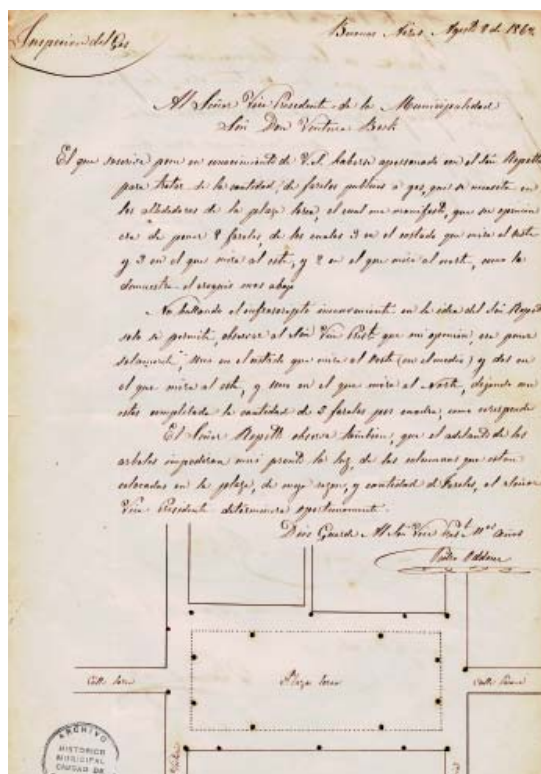 Inspeccion del Gas
Buenos Aires, Agosto 2 de 186
Al Señor Vice Presidente de la Municipalidad
Don Ventura Bosh
El que suscrive pone en conocimiento de V.S. haberse apersonado en el Repetto
para tratar de la cantidad de faroles publicos a gas, que se necesita en
los alrededores de la plaza Lorea, el cual me manifestó, que su opinion
era de poner 8 faroles, de los cuales 3 en el costado que mira al Oeste
y 3 en el que mira al este, y 2 en el que mira al norte, como lo
demuestra el croquis mas abajo
No hallando el infrascripto inconveniente en la idea del Repetto
solo se permite, observar al Vice que mi opinion era poner
solamente, uno en el costado que mira al Oeste (en el medio) y dos en
el que mira al este, y uno en el que mira al Norte, dejando con
estos completada la cantidad de 5 faroles por cuadra, como corresponde
El Señor Repetto observa tambien, que el adelanto de los
arboles impediran muy pronto la luz, de las columnas que estan
colocadas en la plaza, de cuya razon, y cantidad de faroles, el Señor
Vice Presidente determinara oportunamente
Dios Guarde Al Vice años
Calle Lorea
Plaza Lorea
Calle
ARCHIVO
HISTORICO
MUNICIPAL
CIUDAD DE